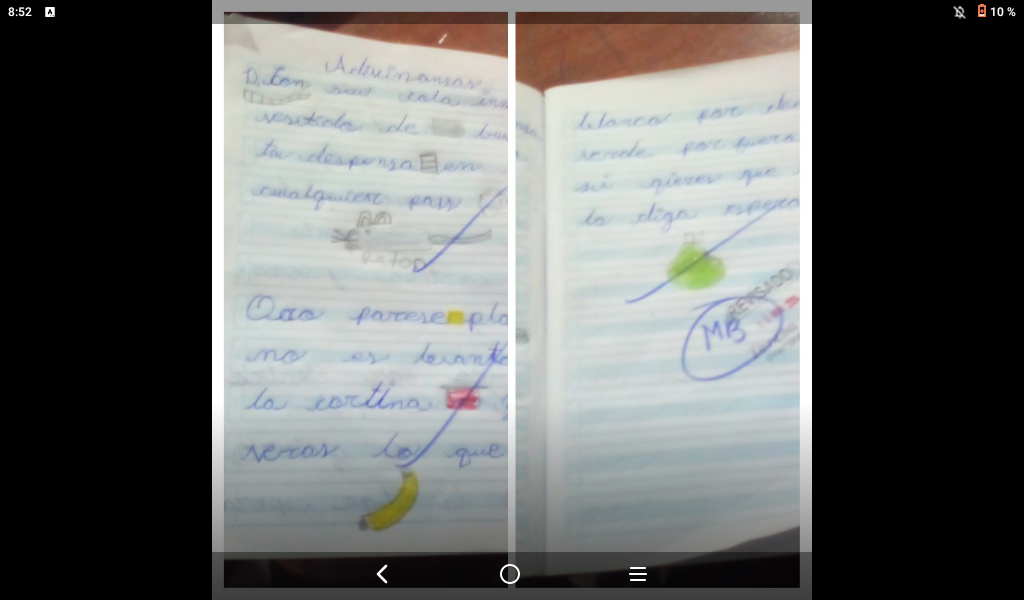 8:52
A
10 %
Adivinansas
D. Con su cola
vestido de
tu despensa en
cualquier
Raton
Oro parese pla
no es levant
la cortina
veras lo que
blanco por de
verde por
si quieres que
la diga espera
REVISADO
MB